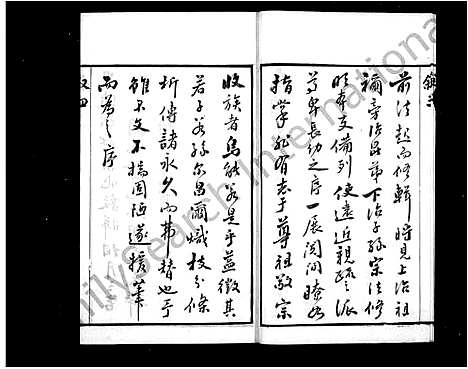 前法起而修輯時見上治祖
禰旁治昆弟下治子孫宗法修
明本支備列使遠近親疏之派
尊卑長幼之序一展閱間瞭如
指掌非有志于尊祖敬宗
收族者烏能若是乎益徵其
若子若孫尔昌爾熾枝分條
析傳諸永久而弗替也予
雖不文不揣固陋遂援筆
而為之序
FamilySearch International